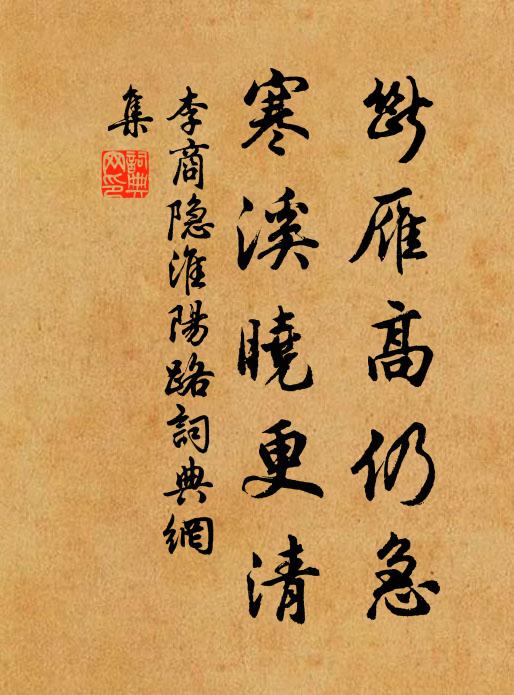 斷雁高仍急
寒溪曉更清
李商隐淮陽路詞典網
集
詞典網印